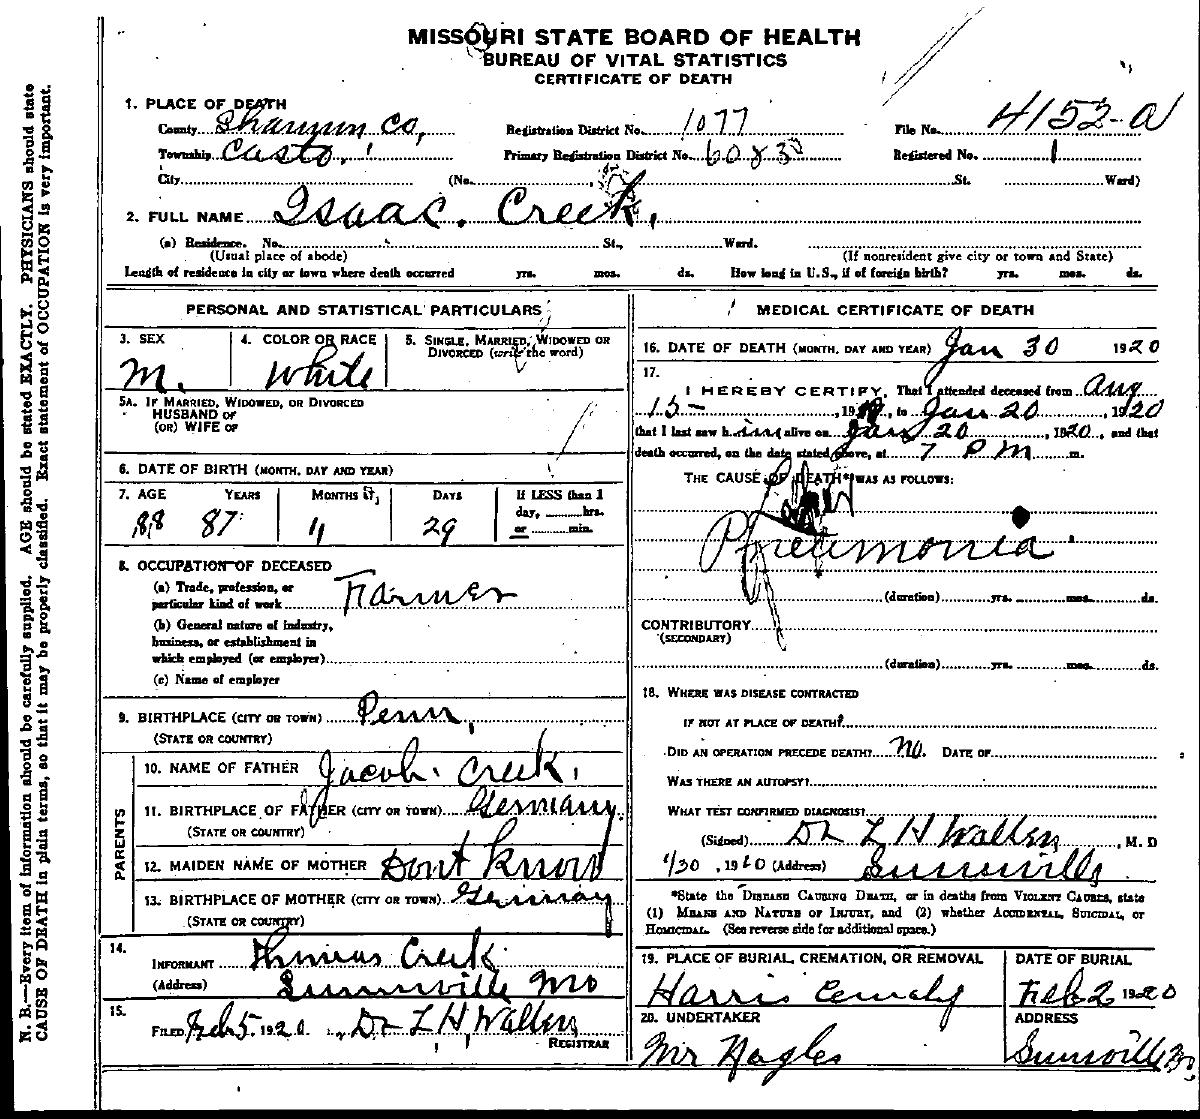 MISSOURI STATE BOARD OF HEALTH
BUREAU OF VITAL STATISTICS
CERTIFICATE OF DEATH
N. B.—Every item of information should be carefully supplied. AGE should be stated EXACTLY. PHYSICIANS should state
CAUSE OF DEATH in plain terms, so that it may be properly classified. Exact statement of OCCUPATION is very important.
1. PLACE OF DEATH
County Shannon Co, Registration District No. 1077 File No. 4152-a
Township Casto. Primary Registration District No. Registered No. 1
City (No. St. Ward)
2. FULL NAME Isaac. Creek,
(a) Residence. No. St., Ward.
(Usual place of abode) (If nonresident give city or town and State)
Length of residence in city or town where death occurred yrs. mos. ds. How long in U.S., if of foreign birth? yrs. mos. ds.
PERSONAL AND STATISTICAL PARTICULARS
3. SEX 4. COLOR OR RACE 5. SINGLE, MARRIED, WIDOWED OR
DIVORCED (write the word)
M. White
5A. IF MARRIED, WIDOWED, OR DIVORCED
HUSBAND OF
(OR) WIFE OF
6. DATE OF BIRTH (MONTH, DAY AND YEAR)
7. AGE YEARS MONTHS DAYS If LESS than 1
day, hrs.
or min.
88 87 11 29
8. OCCUPATION OF DECEASED
(a) Trade, profession, or
particular kind of work Farmer
(b) General nature of industry,
business, or establishment in
which employed (or employer)
(c) Name of employer
9. BIRTHPLACE (CITY OR TOWN) Penn,
(STATE OR COUNTRY)
PARENTS
10. NAME OF FATHER Jacob. Creek.
11. BIRTHPLACE OF FATHER (CITY OR TOWN) Germany.
(STATE OR COUNTRY)
12. MAIDEN NAME OF MOTHER Dont Know
13. BIRTHPLACE OF MOTHER (CITY OR TOWN) Germany
(STATE OR COUNTRY)
14.
INFORMANT Thomas Creek
(Address) Summville Mo
15.
FILED Feb 5, 1920. Dr L H Walters
REGISTRAR
MEDICAL CERTIFICATE OF DEATH
16. DATE OF DEATH (MONTH, DAY AND YEAR) Jan 30 1920
17.
I HEREBY CERTIFY, That I attended deceased from Aug
15- , 19 , to Jan 20 , 1920
that I last saw him alive on Jan 20 , 1920, and that
death occurred, on the date stated above, at 7 P M m.
THE CAUSE OF DEATH* WAS AS FOLLOWS:
Pneumonia
(duration) yrs. mos. ds.
CONTRIBUTORY
(SECONDARY)
(duration) yrs. mos. ds.
18. WHERE WAS DISEASE CONTRACTED
IF NOT AT PLACE OF DEATH?
DID AN OPERATION PRECEDE DEATH? No. DATE OF
WAS THERE AN AUTOPSY?
WHAT TEST CONFIRMED DIAGNOSIS?
(Signed) Dr L H Walters , M. D
1/30 , 1920 (Address) Summville
*State the DISEASE CAUSING DEATH, or in deaths from VIOLENT CAUSES, state
(1) MEANS AND NATURE OF INJURY, and (2) whether ACCIDENTAL, SUICIDAL, or
HOMICIDAL. (See reverse side for additional space.)
19. PLACE OF BURIAL, CREMATION, OR REMOVAL DATE OF BURIAL
Harris Feb 2 1920
20. UNDERTAKER ADDRESS
Mr Nagles